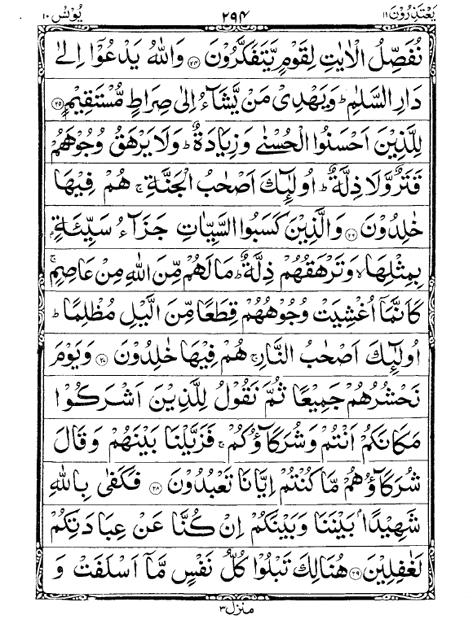 يَعْتَذِرُوْنَ ١١ ٢٩٤ يُوْنُسَ ١٠
نُفَصِّلُ الْاٰيٰتِ لِقَوْمٍ يَّتَفَكَّرُوْنَ ﴿٢٤﴾ وَاللّٰهُ يَدْعُوْۤا اِلٰى
دَارِ السَّلٰمِ ؕ وَيَهْدِىْ مَنْ يَّشَآءُ اِلٰى صِرَاطٍ مُّسْتَقِيْمٍ ﴿٢٥﴾
لِلَّذِيْنَ اَحْسَنُوا الْحُسْنٰى وَزِيَادَةٌ ؕ وَلَا يَرْهَقُ وُجُوْهَهُمْ
قَتَرٌ وَّلَا ذِلَّةٌ ؕ اُولٰٓئِكَ اَصْحٰبُ الْجَنَّةِ ۚ هُمْ فِيْهَا
خٰلِدُوْنَ ﴿٢٦﴾ وَالَّذِيْنَ كَسَبُوا السَّيِّاٰتِ جَزَآءُ سَيِّئَةٍۭ
بِمِثْلِهَا ۙ وَتَرْهَقُهُمْ ذِلَّةٌ ؕ مَا لَهُمْ مِّنَ اللّٰهِ مِنْ عَاصِمٍ ۚ
كَاَنَّمَاۤ اُغْشِيَتْ وُجُوْهُهُمْ قِطَعًا مِّنَ الَّيْلِ مُظْلِمًا ؕ
اُولٰٓئِكَ اَصْحٰبُ النَّارِ ۚ هُمْ فِيْهَا خٰلِدُوْنَ ﴿٢٧﴾ وَيَوْمَ
نَحْشُرُهُمْ جَمِيْعًا ثُمَّ نَقُوْلُ لِلَّذِيْنَ اَشْرَكُوْا
مَكَانَكُمْ اَنْتُمْ وَشُرَكَآؤُكُمْ ۚ فَزَيَّلْنَا بَيْنَهُمْ وَقَالَ
شُرَكَآؤُهُمْ مَّا كُنْتُمْ اِيَّانَا تَعْبُدُوْنَ ﴿٢٨﴾ فَكَفٰى بِاللّٰهِ
شَهِيْدًۢا بَيْنَنَا وَبَيْنَكُمْ اِنْ كُنَّا عَنْ عِبَادَتِكُمْ
لَغٰفِلِيْنَ ﴿٢٩﴾ هُنَالِكَ تَبْلُوْا كُلُّ نَفْسٍ مَّاۤ اَسْلَفَتْ وَ
منزل ٣